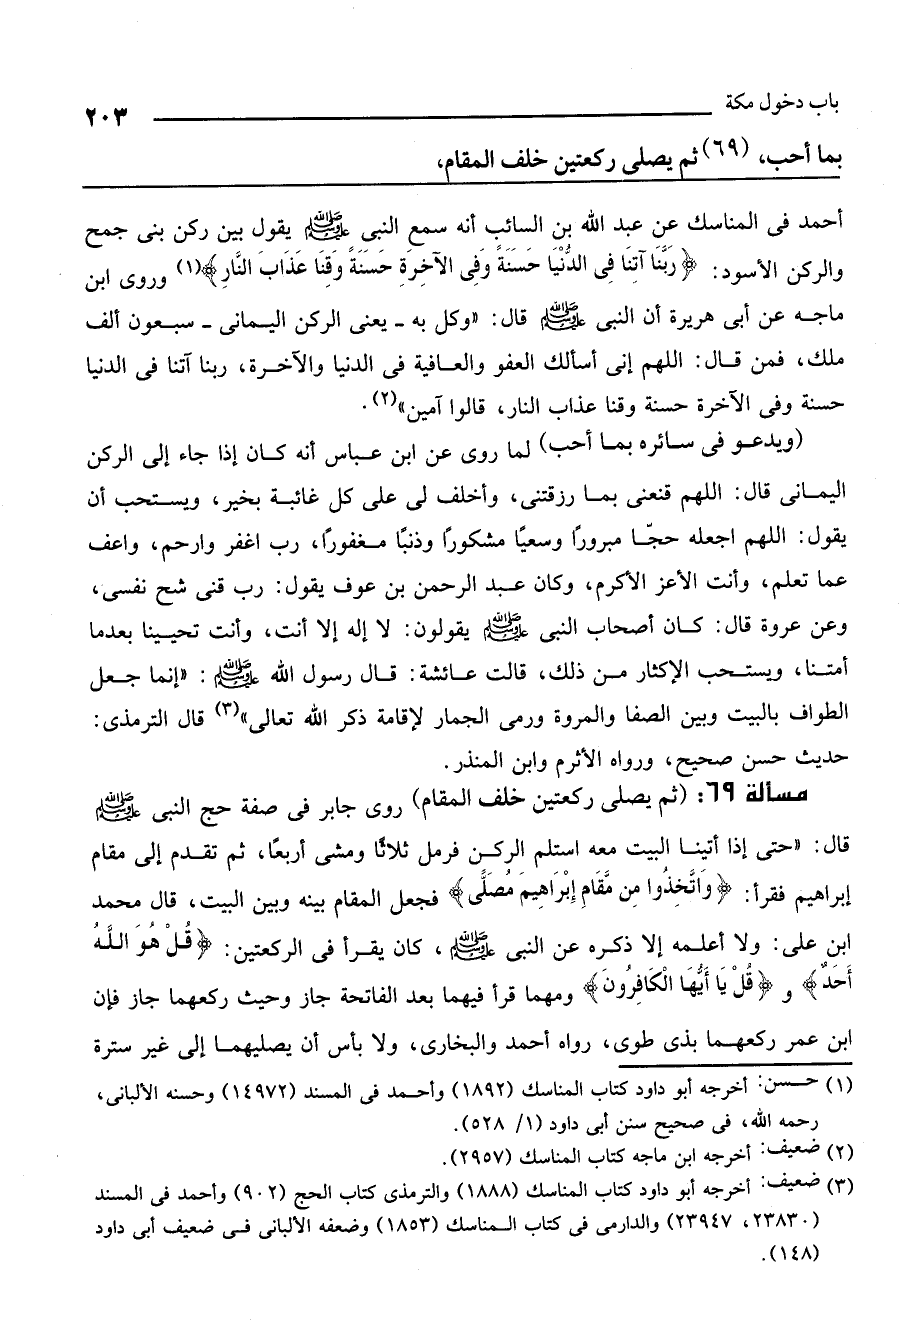 باب دخول مكة ٢٠٣
بما أحب، (٦٩) ثم يصلى ركعتين خلف المقام،
أحمد فى المناسك عن عبد الله بن السائب أنه سمع النبى ﷺ يقول بين ركن بنى جمح
والركن الأسود: ﴿رَبَّنَا آتِنَا فِى الدُّنْيَا حَسَنَةً وَفِى الآخِرَةِ حَسَنَةً وَقِنَا عَذَابَ النَّارِ﴾(١) وروى ابن
ماجه عن أبى هريرة أن النبى ﷺ قال: «وكل به ـ يعنى الركن اليمانى ـ سبعون ألف
ملك، فمن قال: اللهم إنى أسألك العفو والعافية فى الدنيا والآخرة، ربنا آتنا فى الدنيا
حسنة وفى الآخرة حسنة وقنا عذاب النار، قالوا آمين»(٢).
(ويدعو فى سائره بما أحب) لما روى عن ابن عباس أنه كان إذا جاء إلى الركن
اليمانى قال: اللهم قنعنى بما رزقتنى، وأخلف لى على كل غائبة بخير، ويستحب أن
يقول: اللهم اجعله حجّا مبرورًا وسعيًا مشكورًا وذنبًا مغفورًا، رب اغفر وارحم، واعف
عما تعلم، وأنت الأعز الأكرم، وكان عبد الرحمن بن عوف يقول: رب قنى شح نفسى،
وعن عروة قال: كان أصحاب النبى ﷺ يقولون: لا إله إلا أنت، وأنت تحيينا بعدما
أمتنا، ويستحب الإكثار من ذلك، قالت عائشة: قال رسول الله ﷺ : «إنما جعل
الطواف بالبيت وبين الصفا والمروة ورمى الجمار لإقامة ذكر الله تعالى»(٣) قال الترمذى:
حديث حسن صحيح، ورواه الأثرم وابن المنذر.
مسألة ٦٩: (ثم يصلى ركعتين خلف المقام) روى جابر فى صفة حج النبى ﷺ
قال: «حتى إذا أتينا البيت معه استلم الركن فرمل ثلاثًا ومشى أربعًا، ثم تقدم إلى مقام
إبراهيم فقرأ: ﴿وَاتَّخِذُوا مِن مَّقَامِ إِبْرَاهِيمَ مُصَلًّى﴾ فجعل المقام بينه وبين البيت، قال محمد
ابن على: ولا أعلمه إلا ذكره عن النبى ﷺ ، كان يقرأ فى الركعتين: ﴿قُلْ هُوَ اللَّهُ
أَحَدٌ﴾ و ﴿قُلْ يَا أَيُّهَا الْكَافِرُونَ﴾ ومهما قرأ فيهما بعد الفاتحة جاز وحيث ركعهما جاز فإن
ابن عمر ركعهما بذى طوى، رواه أحمد والبخارى، ولا بأس أن يصليهما إلى غير سترة
(١) حسن: أخرجه أبو داود كتاب المناسك (١٨٩٢) وأحمد فى المسند (١٤٩٧٢) وحسنه الألبانى،
رحمه الله، فى صحيح سنن أبى داود (١/ ٥٢٨).
(٢) ضعيف: أخرجه ابن ماجه كتاب المناسك (٢٩٥٧).
(٣) ضعيف: أخرجه أبو داود كتاب المناسك (١٨٨٨) والترمذى كتاب الحج (٩٠٢) وأحمد فى المسند
(٢٣٨٣٠، ٢٣٩٤٧) والدارمى فى كتاب المناسك (١٨٥٣) وضعفه الألبانى فى ضعيف أبى داود
(١٤٨).